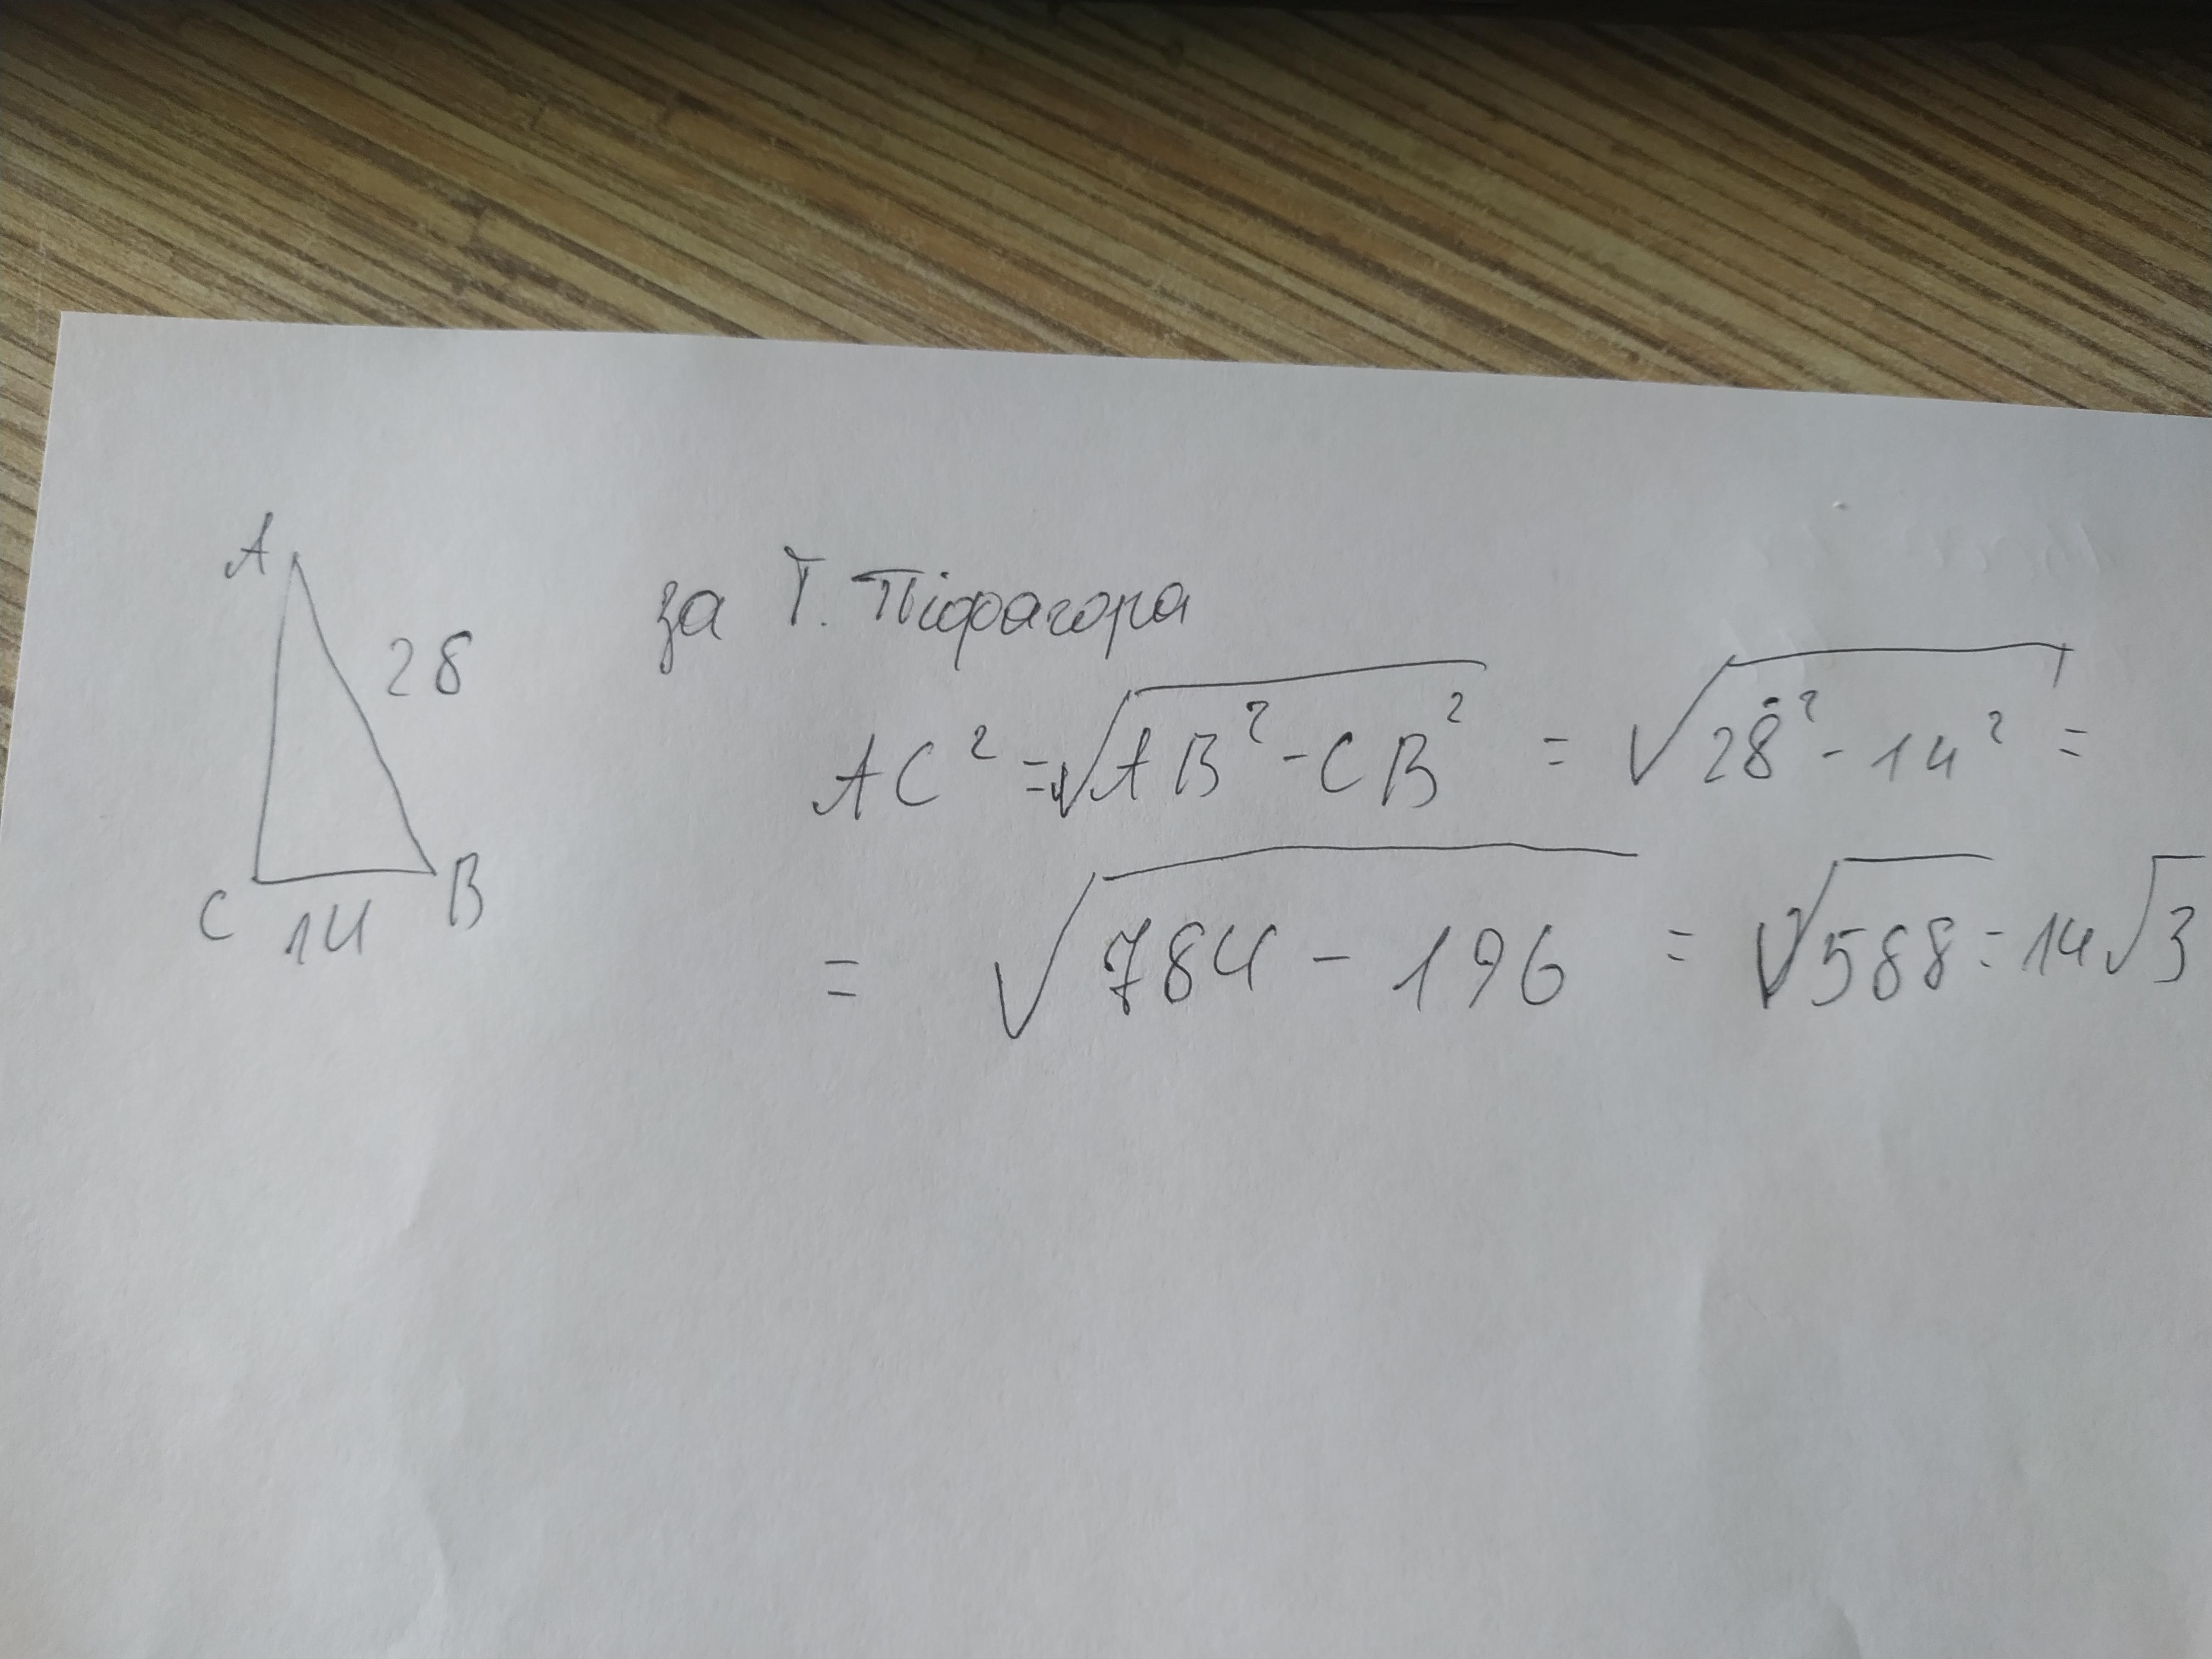 A
28
C
14
B
за Т. Піфагора
AC² = √AB² - CB² = √28² - 14² =
= √784 - 196 = √588 = 14√3